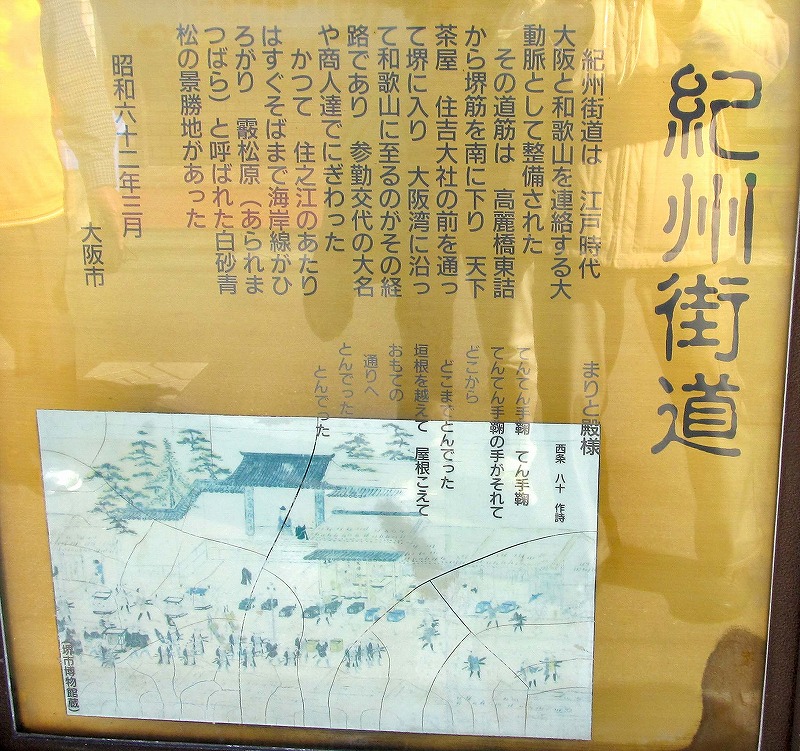 紀州街道
紀州街道は　江戸時代
大阪と和歌山を連絡する大
動脈として整備された
その道筋は　高麗橋東詰
から堺筋を南に下り　天下
茶屋　住吉大社の前を通っ
て堺に入り　大阪湾に沿っ
て和歌山に至るのがその経
路であり　参勤交代の大名
や商人達でにぎわった
かつて　住之江のあたり
はすぐそばまで海岸線がひ
ろがり　霰松原（あられま
つばら）と呼ばれた白砂青
松の景勝地があった
昭和六十二年三月
大阪市
まりと殿様
西条　八十　作詩
てんてん手鞠　てん手鞠
てんてん手鞠の手がそれて
どこから
どこまでとんでった
垣根を越えて　屋根こえて
おもての
通りへ
とんでった
とんでった
（堺市博物館蔵）